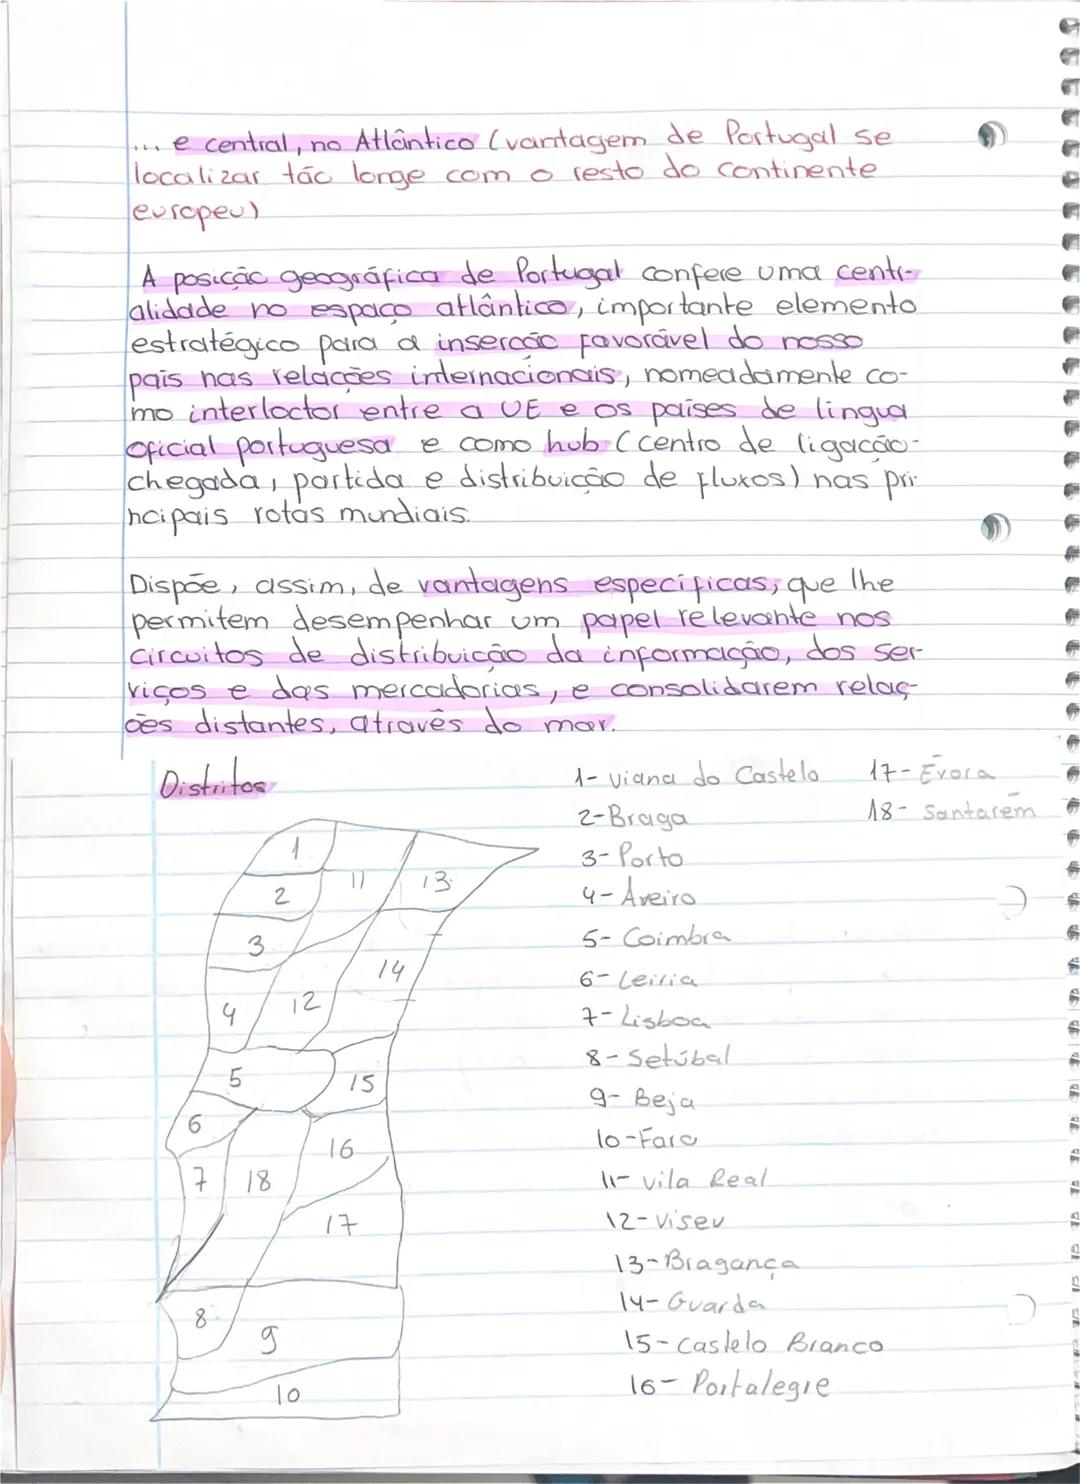 ... e central, no Atlântico (vantagem de Portugal se
localizar tão longe com o resto do continente
europeu)
A posição geográfica de Portugal confere uma centr-
alidade no espaço atlântico, importante elemento
estratégico para a inserção favorável do nosso
país nas relações internacionais, nomeadamente co-
mo interloctor entre a UE e os países de língua
oficial portuguesa e como hub (centro de ligação-
chegada, partida e distribuição de fluxos) nas pri-
ncipais rotas mundiais.
Dispõe, assim, de vantagens específicas, que lhe
permitem desempenhar um papel relevante nos
circuitos de distribuição da informação, dos ser-
viços e das mercadorias, e consolidarem relaç-
ões distantes, através do mar.
Distritos
1- Viana do Castelo
2-Braga
3- Porto
4- Aveiro
5- Coimbra
6- Leiria
7- Lisboa
8- Setúbal
9- Beja
10-Faro
11- Vila Real
12- Viseu
13-Bragança
14- Guarda
15- Castelo Branco
16- Portalegre
17- Évora
18- Santarém
1
2
11
13
3
14
4
12
5
15
6
16
7
18
17
8
9
10